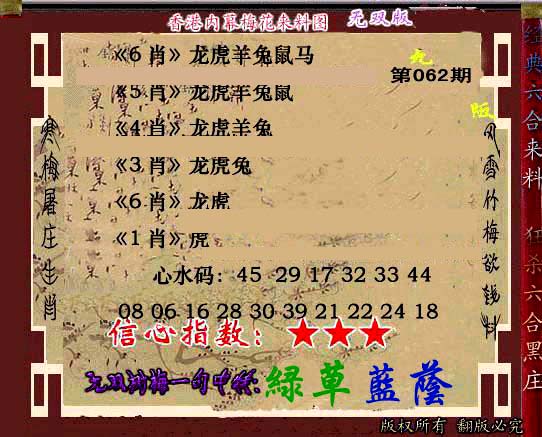 香港内幕梅花来料图 无双版
《6肖》龙虎羊兔鼠马
第062期
《5肖》龙虎羊兔鼠
《4肖》龙虎羊兔
《3肖》龙虎兔
《6肖》龙虎
《1肖》虎
心水码：45 29 17 32 33 44
08 06 16 28 30 39 21 22 24 18
信心指数：★★★
无双浏梅一句中特：綠草藍蔭
寒梅屠庄生肖
风雪竹梅欲钱料
经典六合来料 狂杀六合黑庄
版
版权所有 翻版必究